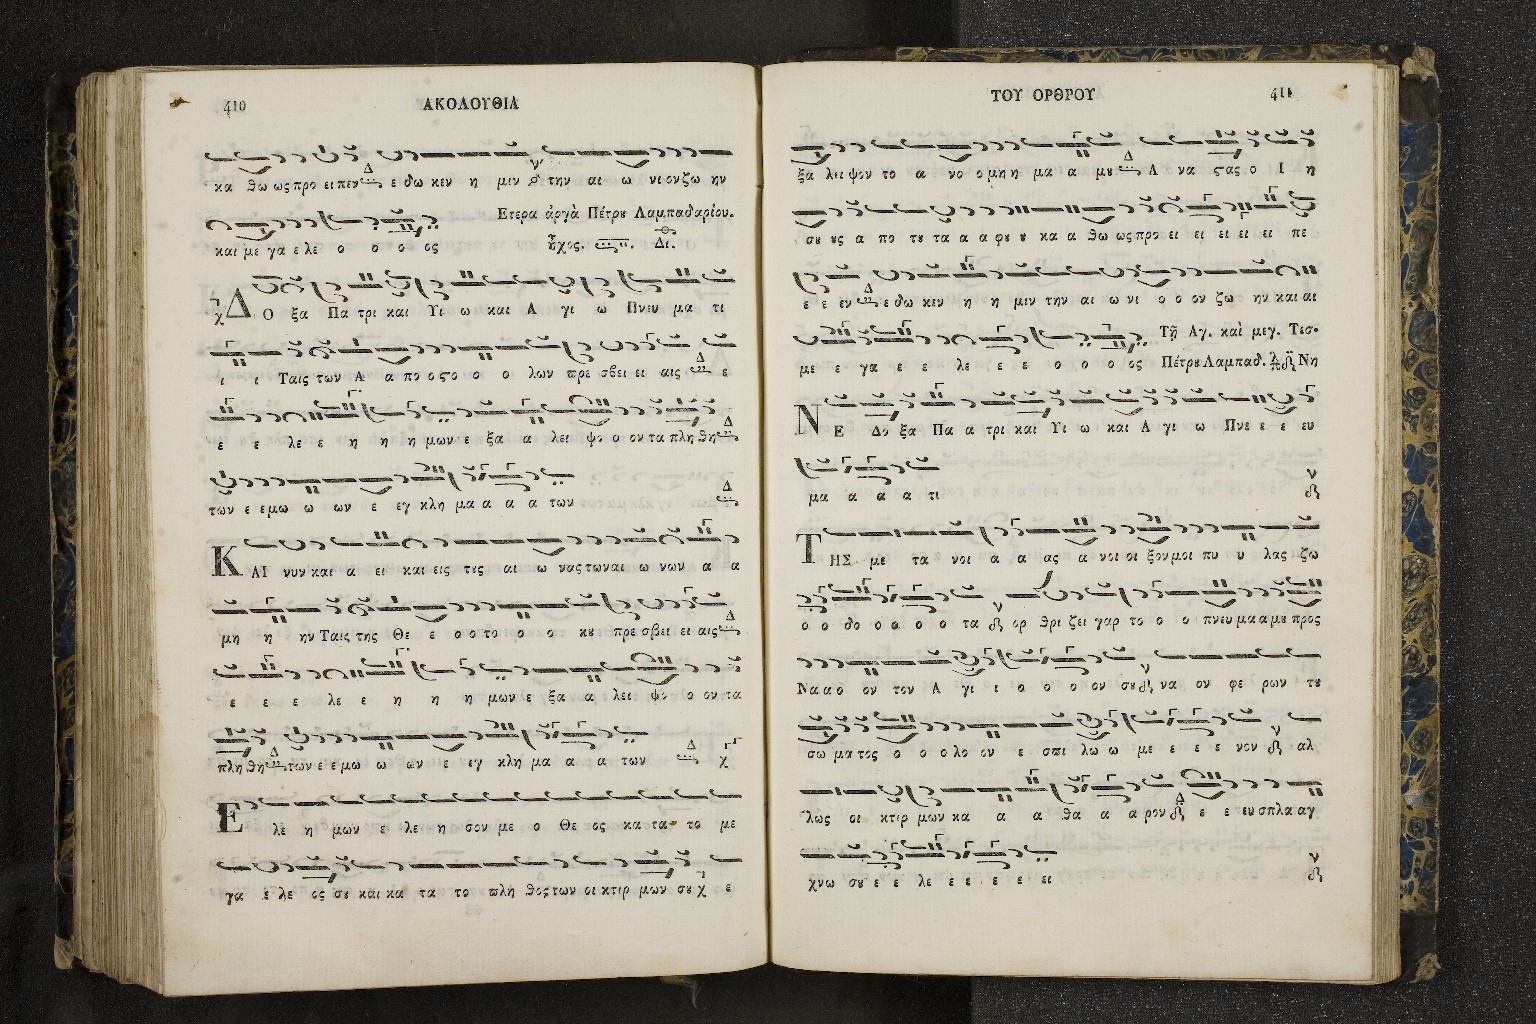 410 ΑΚΟΛΟΥΘΙΑ
κα θω ως προ ει πεν ε δω κεν η μιν την αι ω νι ον ζω ην
και με γα ε λε ο ο ο ος
Ετερα ἀργὰ Πέτρου Λαμπαδαρίου.
ἦχος. Δι.
ΔΟ ξα Πα τρι και Υι ω και Α γι ω Πνευ μα τι
ι ι Ταις των Α α πο ο ϛο ο ο λων πρε σβει ει αις ε
ε ε λε ε η η η μων ε ξα α λει ψο ο ον τα πλη θη
των ε ε μω ω ων ε εγ κλη μα α α α των
ΚΑΙ νυν και α ει και εις τους αι ω νας των αι ω νων α α
μη η ην Ταις της Θε ε ο ο το ο ο κου πρε σβει ει αις
ε ε ε λε ε η η η μων ε ξα α λει ψο ο ον τα
πλη θη των ε ε μω ω ων ε εγ κλη μα α α α των
Ε λε η μων ε λε η σον με ο Θε ος κα τα το με
γα ε λε ος σου και κα τα το πλη θος των οι κτιρ μων σου ε
ΤΟΥ ΟΡΘΡΟΥ 411
ξα λει ψον το α νο ο μη η μα α μου Α να ϛας ο Ι η
σου ους α πο του τα α α φου ου κα α θω ως προ ει ει ει ει ει πε
ε ε εν ε δω κεν η η μιν την αι ω νι ο ο ον ζω ην και αι
με ε γα ε ε λε ε ε ο ο ο ος
Τῇ Αγ. καὶ μεγ. Τεσ.
Πέτρου Λαμπαδ. Νη
ΝΕ Δο ξα Πα α τρι και Υι ω και Α γι ω Πνε ε ε ευ
μα α α α τι
ΤΗΣ με τα νοι α α ας α νοι οι ξον μοι πυ υ λας ζω
ο ο δο ο ο ο ο τα ορ θρι ζει γαρ το ο ο πνευ μα α μου προς
Να α ο ον τον Α γι ι ο ο ο ον σου να ον φε ρων του
σω μα τος ο ο ο λο ον ε σπι λω ω με ε ε ε νον αλ
λως οι κτιρ μων κα α α θα α α ρον ε ε ευ σπλα αγ
χνω σου ε ε λε ε ε ε ε ει